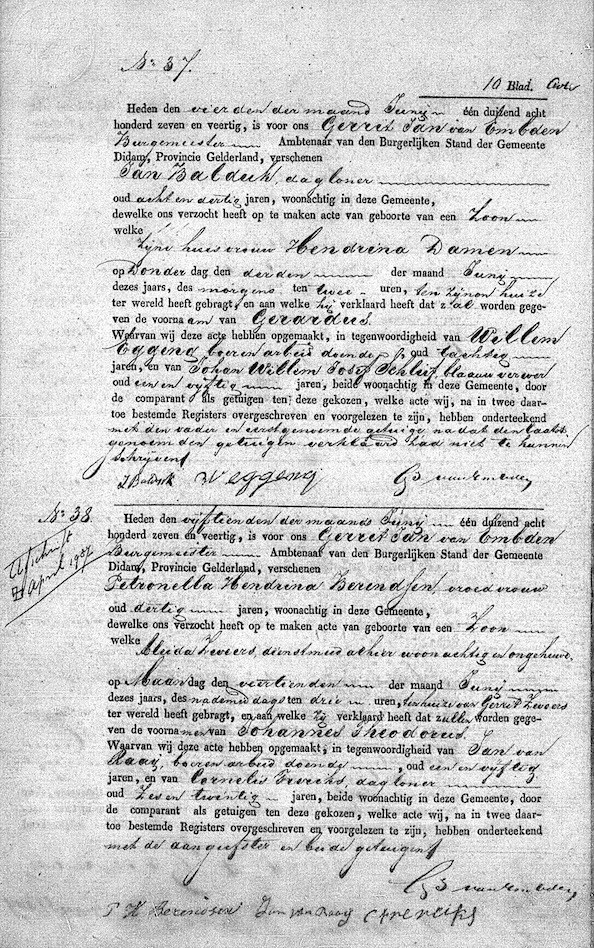 No 37.
10 Blad.
Heden den vierden der maand Junij één duizend acht
honderd zeven en veertig, is voor ons Gerrit Jan van Embden
Burgemeester Ambtenaar van den Burgerlijken Stand der Gemeente
Didam, Provincie Gelderland, verschenen
Jan Balduk, dagloner
oud acht en dertig jaren, woonachtig in deze Gemeente,
dewelke ons verzocht heeft op te maken acte van geboorte van een Zoon
welke
zijne huisvrouw Hendrina Damen
op Donder dag den derden der maand Junij
dezes jaars, des morgens ten twee uren, ten zijnen huize
ter wereld heeft gebragt, en aan welke hij verklaard heeft dat zal worden gege-
ven de voornaam van Gerardus.
Waarvan wij deze acte hebben opgemaakt, in tegenwoordigheid van Willem
Eggeng boeren arbeid doende, oud tachtig
jaren, en van Johan Willem Josef Schleif, blaauwverwer
oud een en vijftig jaren, beide woonachtig in deze Gemeente, door
de comparant als getuigen ten deze gekozen, welke acte wij, na in twee daar-
toe bestemde Registers overgeschreven en voorgelezen te zijn, hebben onderteekend
met den vader en eerstgenoemde getuige nadat den laatst
genoemden getuigen verklaard had niet te kunnen
schrijven
J Balduk W eggeng GJ van Embden
No 38.
Afschrift
April 1937
Heden den vijftienden der maand Junij één duizend acht
honderd zeven en veertig, is voor ons Gerrit Jan van Embden
Burgemeester Ambtenaar van den Burgerlijken Stand der Gemeente
Didam, Provincie Gelderland, verschenen
Petronella Hendrina Berendsen, vroedvrouw
oud dertig jaren, woonachtig in deze Gemeente,
dewelke ons verzocht heeft op te maken acte van geboorte van een Zoon
welke
Aleida Zweers, dienstmeid alhier woonachtig en ongehuwd,
op Maan dag den veertienden der maand Junij
dezes jaars, des nademiddags ten drie uren, ten huize van Gerrit Zweers
ter wereld heeft gebragt, en aan welke zij verklaard heeft dat zullen worden gege-
ven de voornamen van Johannes Theodorus.
Waarvan wij deze acte hebben opgemaakt, in tegenwoordigheid van Jan van
Raaij, boeren arbeid doende, oud een en vijftig
jaren, en van Cornelis Frerichs, dagloner
oud zes en twintig jaren, beide woonachtig in deze Gemeente, door
de comparant als getuigen ten deze gekozen, welke acte wij, na in twee daar-
toe bestemde Registers overgeschreven en voorgelezen te zijn, hebben onderteekend
met de aangeefster en beide getuigen
GJ van Embden,
P H Berendsen Jan van Raaij C freriks